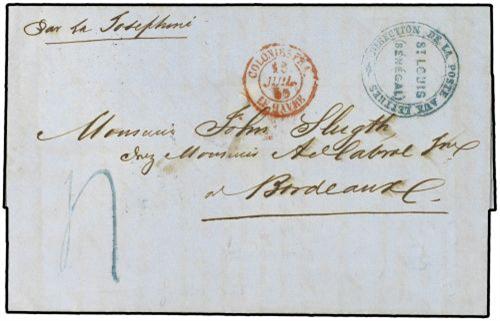 Par la Joséphine
COLONIES FRA.
12
JUIL.
LE HAVRE
DIRECTION DE LA POSTE AUX LETTRES
ST LOUIS
(SENEGAL)
Monsieur John Slugth
chez Monsieur Ad Cabrol Jne
à Bordeaux